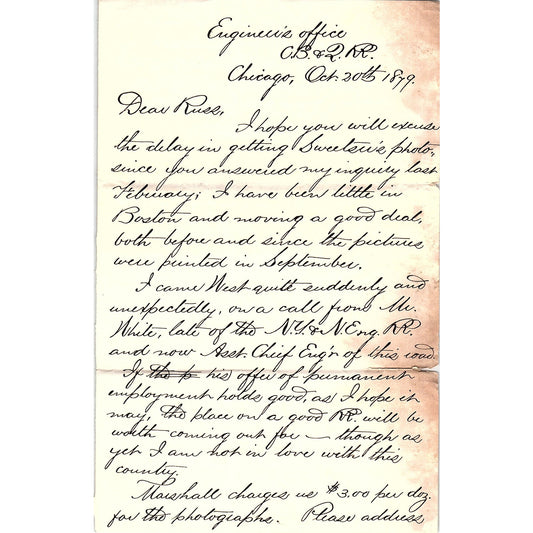 Engineer's office
C.B. & Q. RR.
Chicago, Oct. 20th 1879.
Dear Russ,
I hope you will excuse
the delay in getting Sweetser's photo,
since you answered my inquiry last
February; I have been little in
Boston and moving a good deal,
both before and since the pictures
were printed in September.
I came West quite suddenly and
unexpectedly, on a call from Mr.
White, late of the N.Y. & N.Eng. RR.
and now Asst. Chief Eng'r of this road.
If the p his offer of permanent
employment holds good, as I hope it
may, the place on a good RR. will be
worth coming out for — though as
yet I am not in love with this
country.
Marshall charges us $3.00 per doz.
for the photographs. Please address